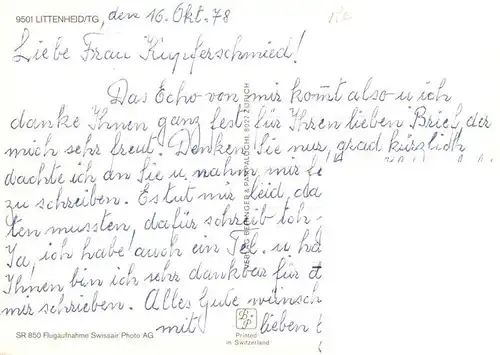 9501 LITTENHEID/TG, den 16. Okt. 78
Liebe Frau Kupferschmied!
Das Echo von mir kom̅t also u ich
danke Ihnen ganz fest für Ihren lieben Brief, der
mich sehr freut. Denken Sie nur, grad kürzlich
dachte ich an Sie u nahm mir
zu schreiben. Es tut mir leid, da
ten mussten, dafür schreib ich
Ja, ich habe auch ein Tel. u ha
Ihnen bin ich sehr dankbar für d
mir schrieben. Alles Gute wünsch
mit lieben
VERLAG BERINGER & PAMPALUCHI, 8027 ZÜRICH
SR 850 Flugaufnahme Swissair Photo AG
B+P
Printed
in Switzerland